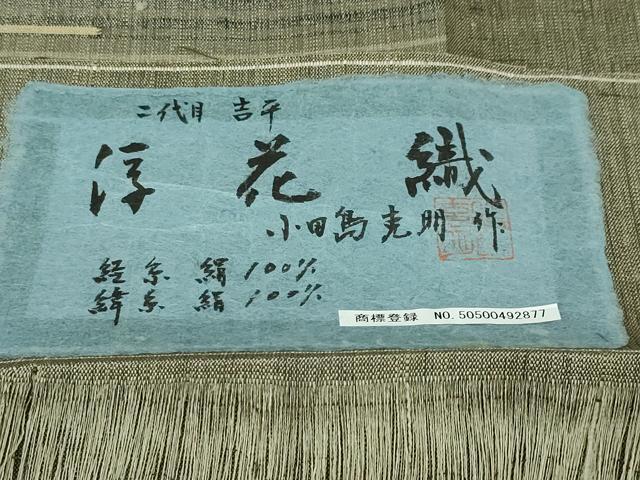 二代目 吉平
淳 花 織
小田島克明 作
経糸 絹100%
緯糸 絹100%
商標登録 NO.50500492877